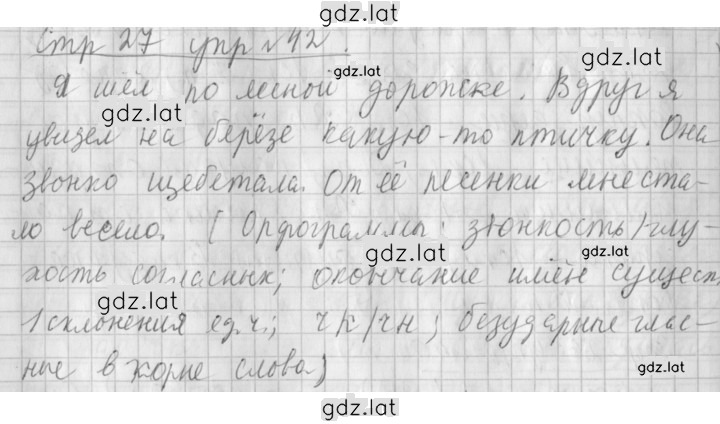 gdz.lat
Стр 27 упр №42.
gdz.lat
Я шёл по лесной дорожке. Вдруг я
gdz.lat
увидел на берёзе какую-то птичку. Она
звонко щебетала. От её песенки мне ста-
ло весело. (Орфограммы: звонкость/глу-
gdz.lat
хость согласных; окончание имён сущест.
gdz.lat
1 склонения ед.ч.; чк/чн; безударные глас-
ные в корне слова)
gdz.lat
gdz.lat